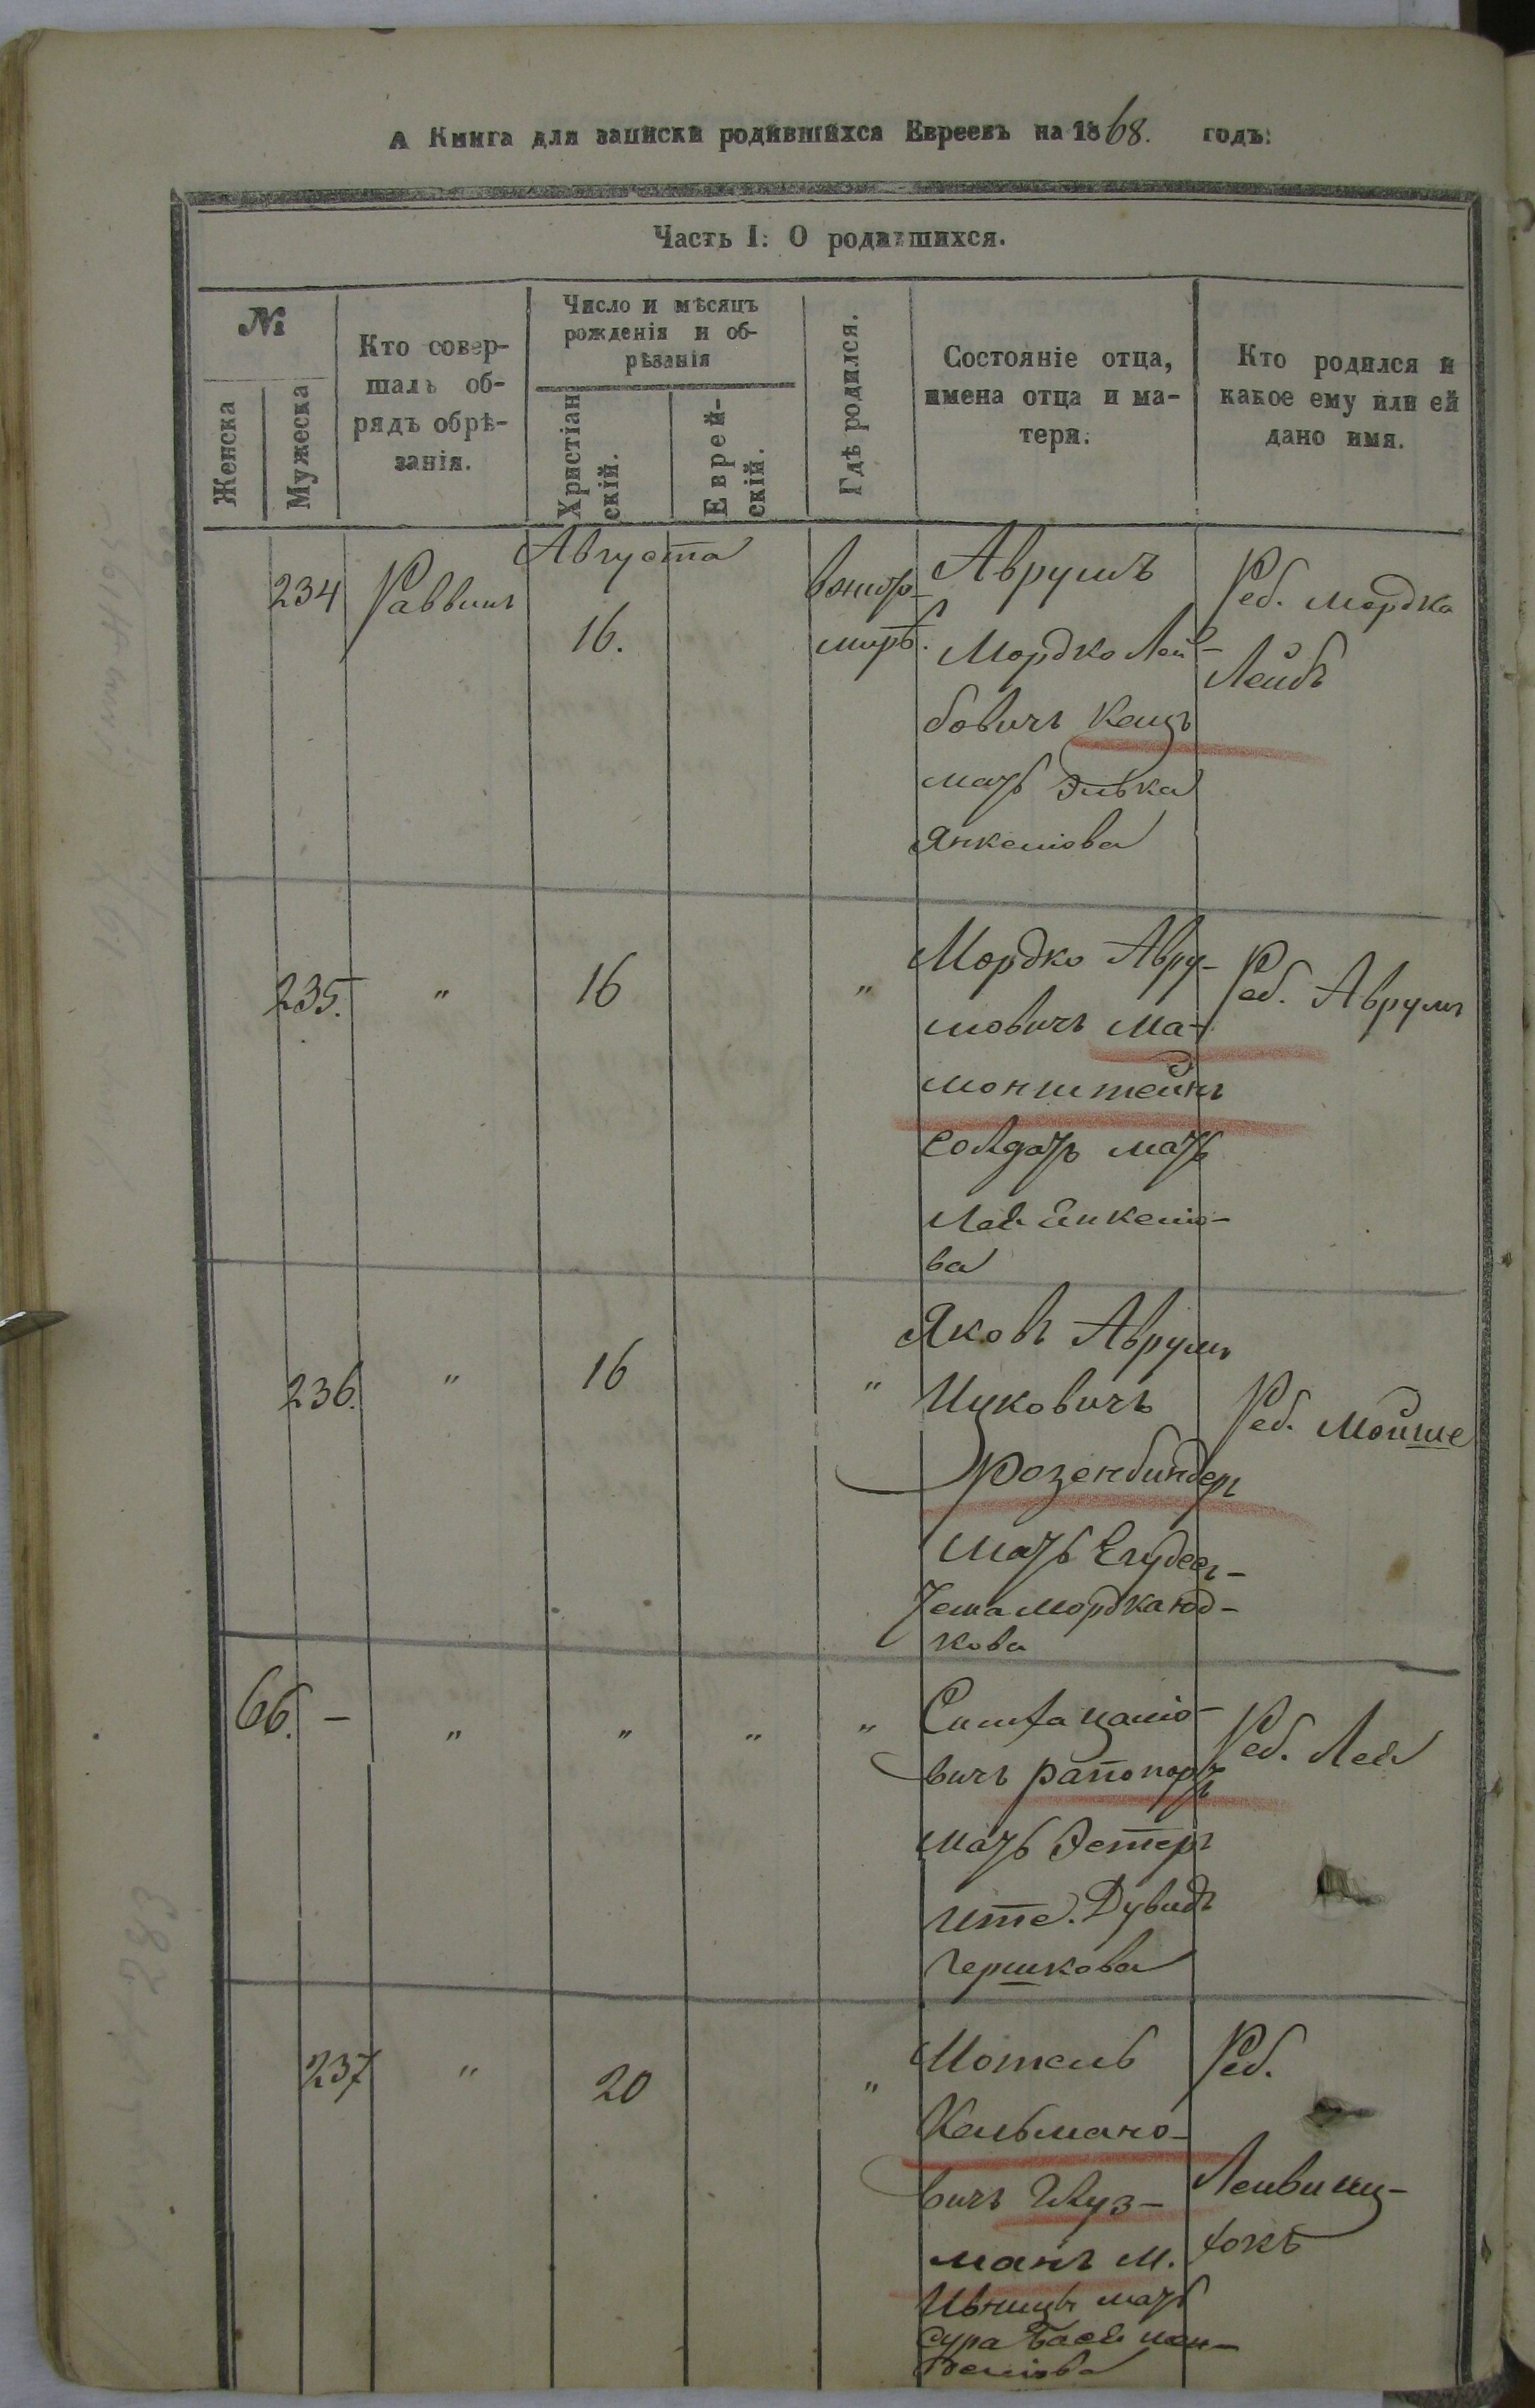 А Книга для записки родившихся Евреевъ на 1868. годъ:
Часть I: О родившихся.
№
Женска
Мужеска
Кто совер-
шалъ об-
рядъ обрѣ-
занія.
Число и мѣсяцъ
рожденія и об-
рѣзанія
Христіан
скій.
Еврей-
скій.
Гдѣ родился.
Состояніе отца,
имена отца и ма-
тери.
Кто родился и
какое ему или ей
дано имя.
Августа
234
Раввинъ
16.
вжито-
мирѣ.
Аврумъ
Мордко Лей-
бовичъ Кацъ
мать Элька
Янкелiова
Реб. Мордко
Лейбъ
235.
"
16
"
Мордко Авру-
мовичъ Ма-
монштейнъ
солдатъ мать
Лея Янкелiо-
ва
Реб. Аврумъ
236.
"
16
"
Яковъ Аврумъ
Ицковичъ
Розенбиндеръ
мать
Мордка Юд-
кова
Реб. Мойше
66. –
"
"
"
"
Симха
вичъ рапопортъ
мать Эстеръ
Ите. Дувидъ
Гершкова
Реб. Лея
237
"
20
"
Мотель
Кельмано-
вичъ Глуз-
манъ м.
Ивницы мать
Сура Бася Мен-
делiова
Реб.
Лейви Иц-
хокъ